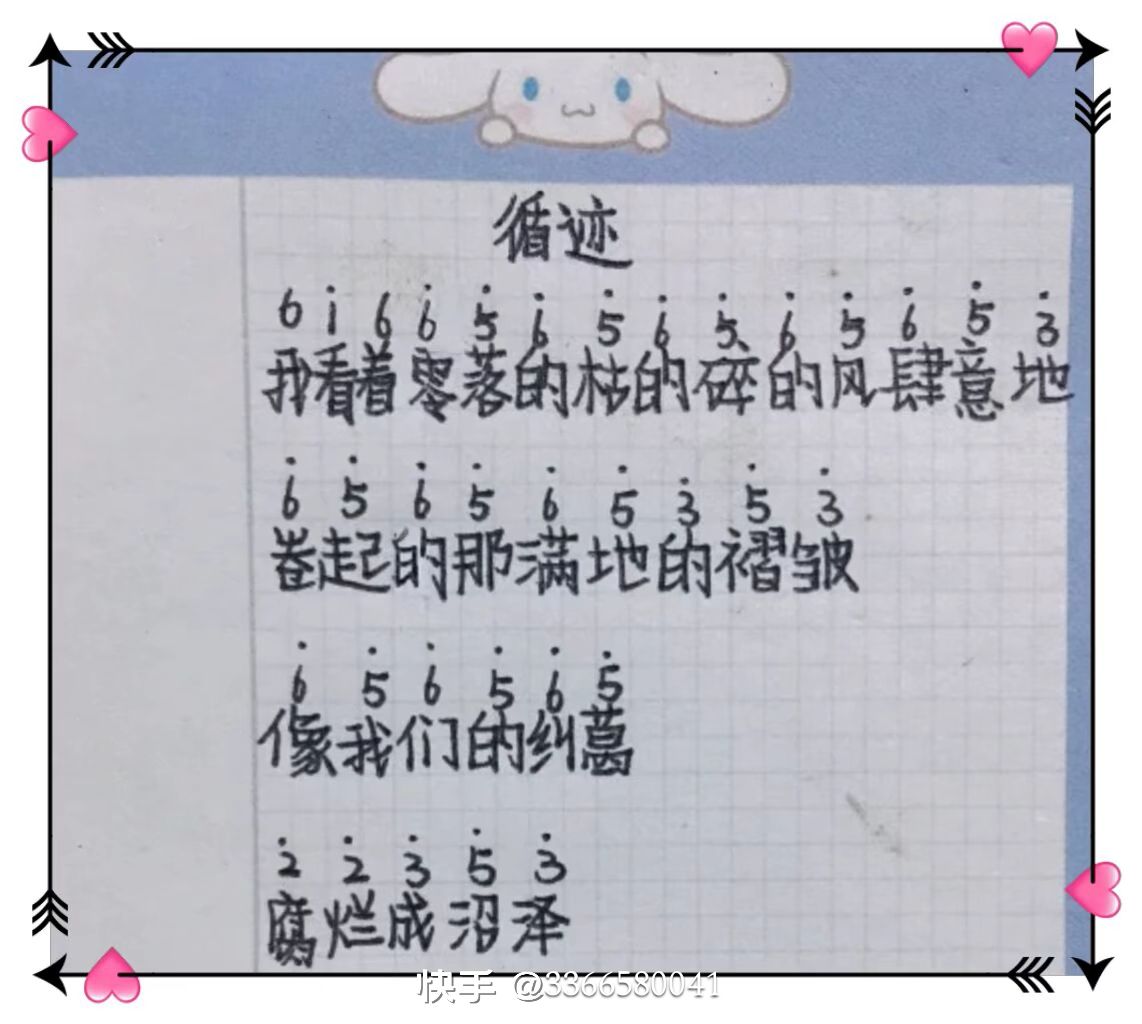 循迹
6 i 6 6̇ 5̇ 6̇ 5̇ 6̇ 5̇ 6̇ 5̇ 6̇ 5̇ 3̇
我看着零落的枯的碎的风肆意地
6̇ 5̇ 6̇ 5̇ 6̇ 5̇ 3̇ 5̇ 3̇
卷起的那满地的褶皱
6̇ 5̇ 6̇ 5̇ 6̇ 5̇
像我们的纠葛
2̇ 2̇ 3̇ 5̇ 3̇
腐烂成沼泽
快手 @3366580041